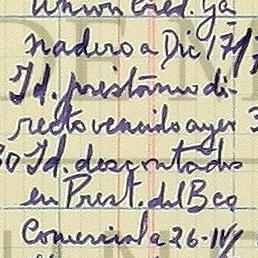 Union Cred. Ga
nadero a Dic 17/7
Id. préstamo di-
recto vencido ayer 3
30 Id. descontados
en Prest. del Bco
Comercial a 26-IV/